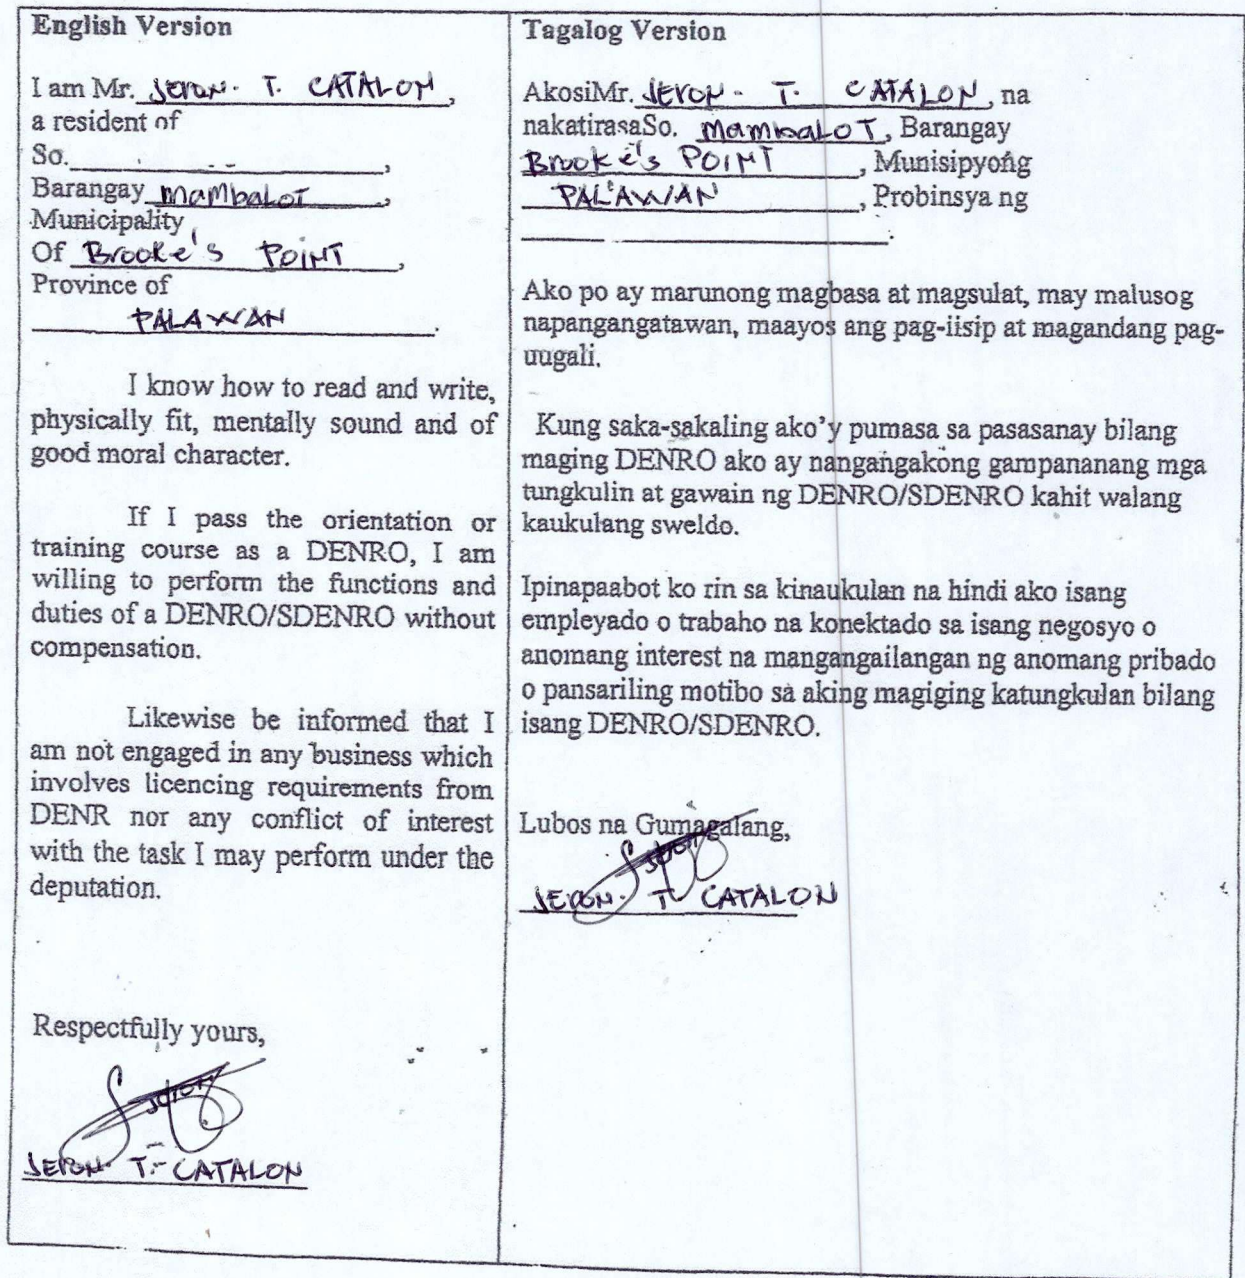 English Version
I am Mr. JERON. T. CATALON,
a resident of
So.              ,
Barangay mambaLoT,
Municipality
Of Brooke's POINT,
Province of
PALAWAN.
I know how to read and write,
physically fit, mentally sound and of
good moral character.
If I pass the orientation or
training course as a DENRO, I am
willing to perform the functions and
duties of a DENRO/SDENRO without
compensation.
Likewise be informed that I
am not engaged in any business which
involves licencing requirements from
DENR nor any conflict of interest
with the task I may perform under the
deputation.
Respectfully yours,
JERON. T. CATALON
Tagalog Version
AkosiMr. JERON. T. CATALON, na
nakatirasaSo. mambaLoT, Barangay
Brooke's POINT, Munisipyong
PALAWAN, Probinsya ng
Ako po ay marunong magbasa at magsulat, may malusog
napangangatawan, maayos ang pag-iisip at magandang pag-
uugali.
Kung saka-sakaling ako'y pumasa sa pasasanay bilang
maging DENRO ako ay nangangakong gampananang mga
tungkulin at gawain ng DENRO/SDENRO kahit walang
kaukulang sweldo.
Ipinapaabot ko rin sa kinaukulan na hindi ako isang
empleyado o trabaho na konektado sa isang negosyo o
anomang interest na mangangailangan ng anomang pribado
o pansariling motibo sa aking magiging katungkulan bilang
isang DENRO/SDENRO.
Lubos na Gumagalang,
JERON. T. CATALON